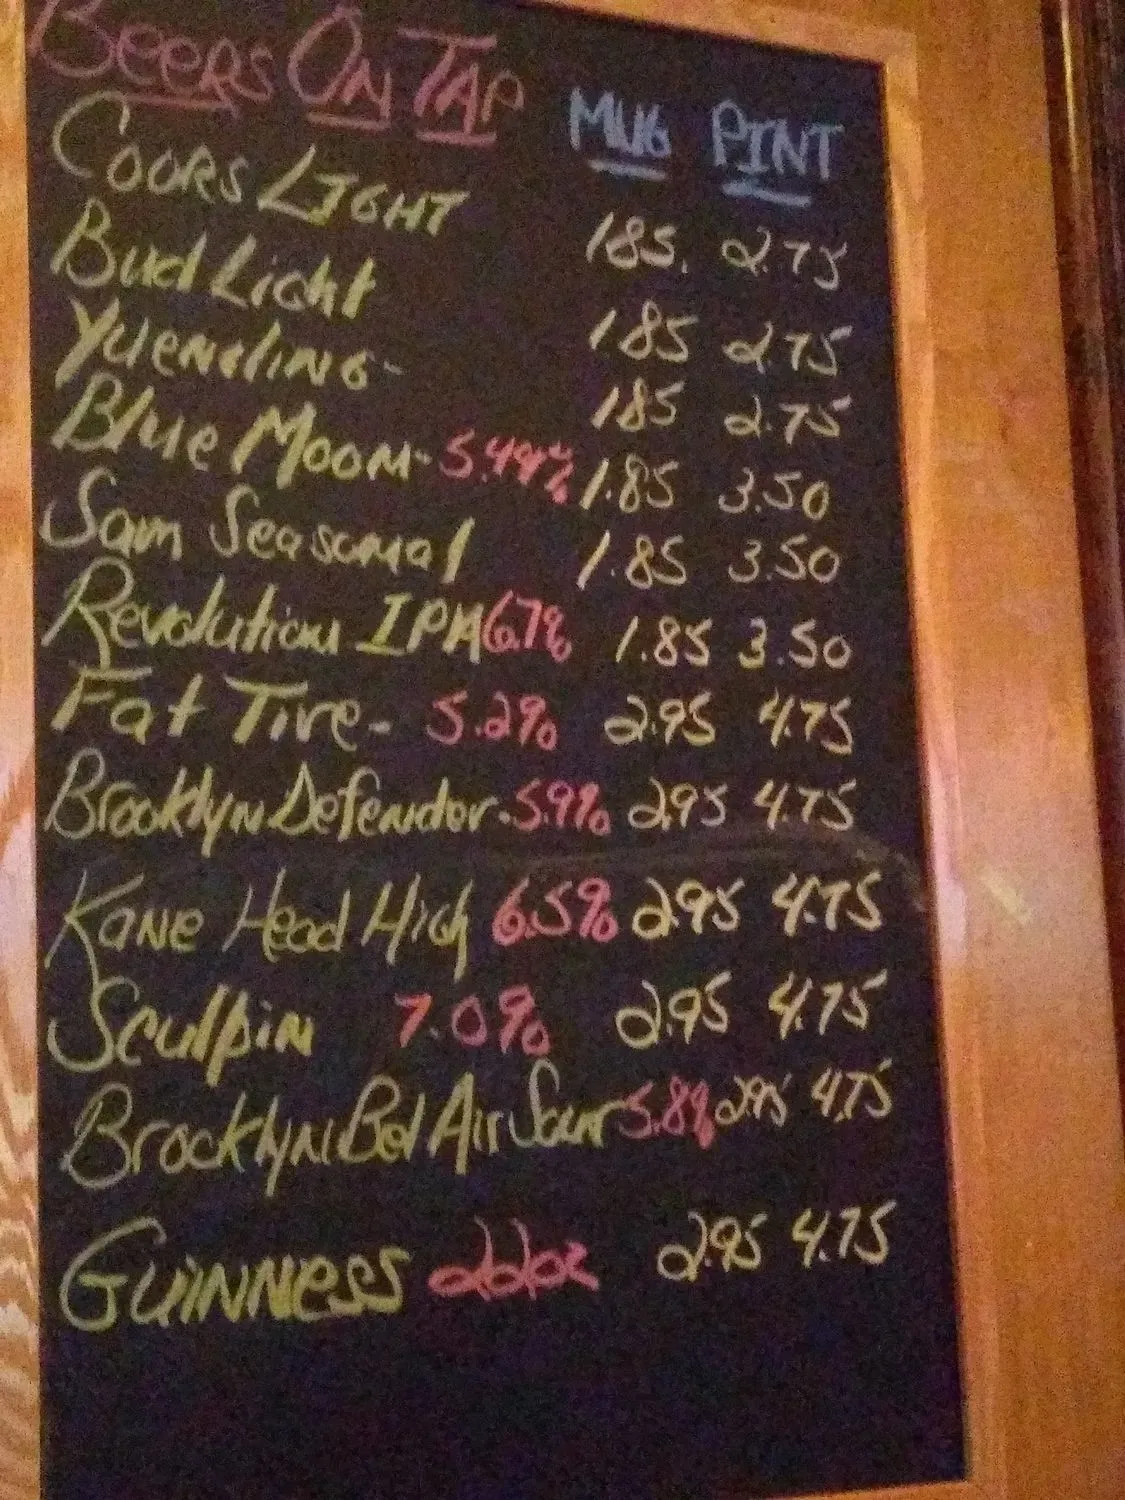 Beers On Tap MUG PINT
Coors Light 185. 2.75
Bud Light 1.85 2.75
Yuengling- 185 2.75
Blue Moon- 5.44% 1.85 3.50
Sam Seasonal 1.85 3.50
Revolution IPA 6.7% 1.85 3.50
Fat Tire- 5.2% 2.95 4.75
Brooklyn Defender-5.9% 2.95 4.75
Kane Head High 6.5% 2.95 4.75
Sculpin 7.0% 2.95 4.75
Brooklyn Bel Air Sour 5.8% 2.95 4.75
Guinness 22oz 2.95 4.75